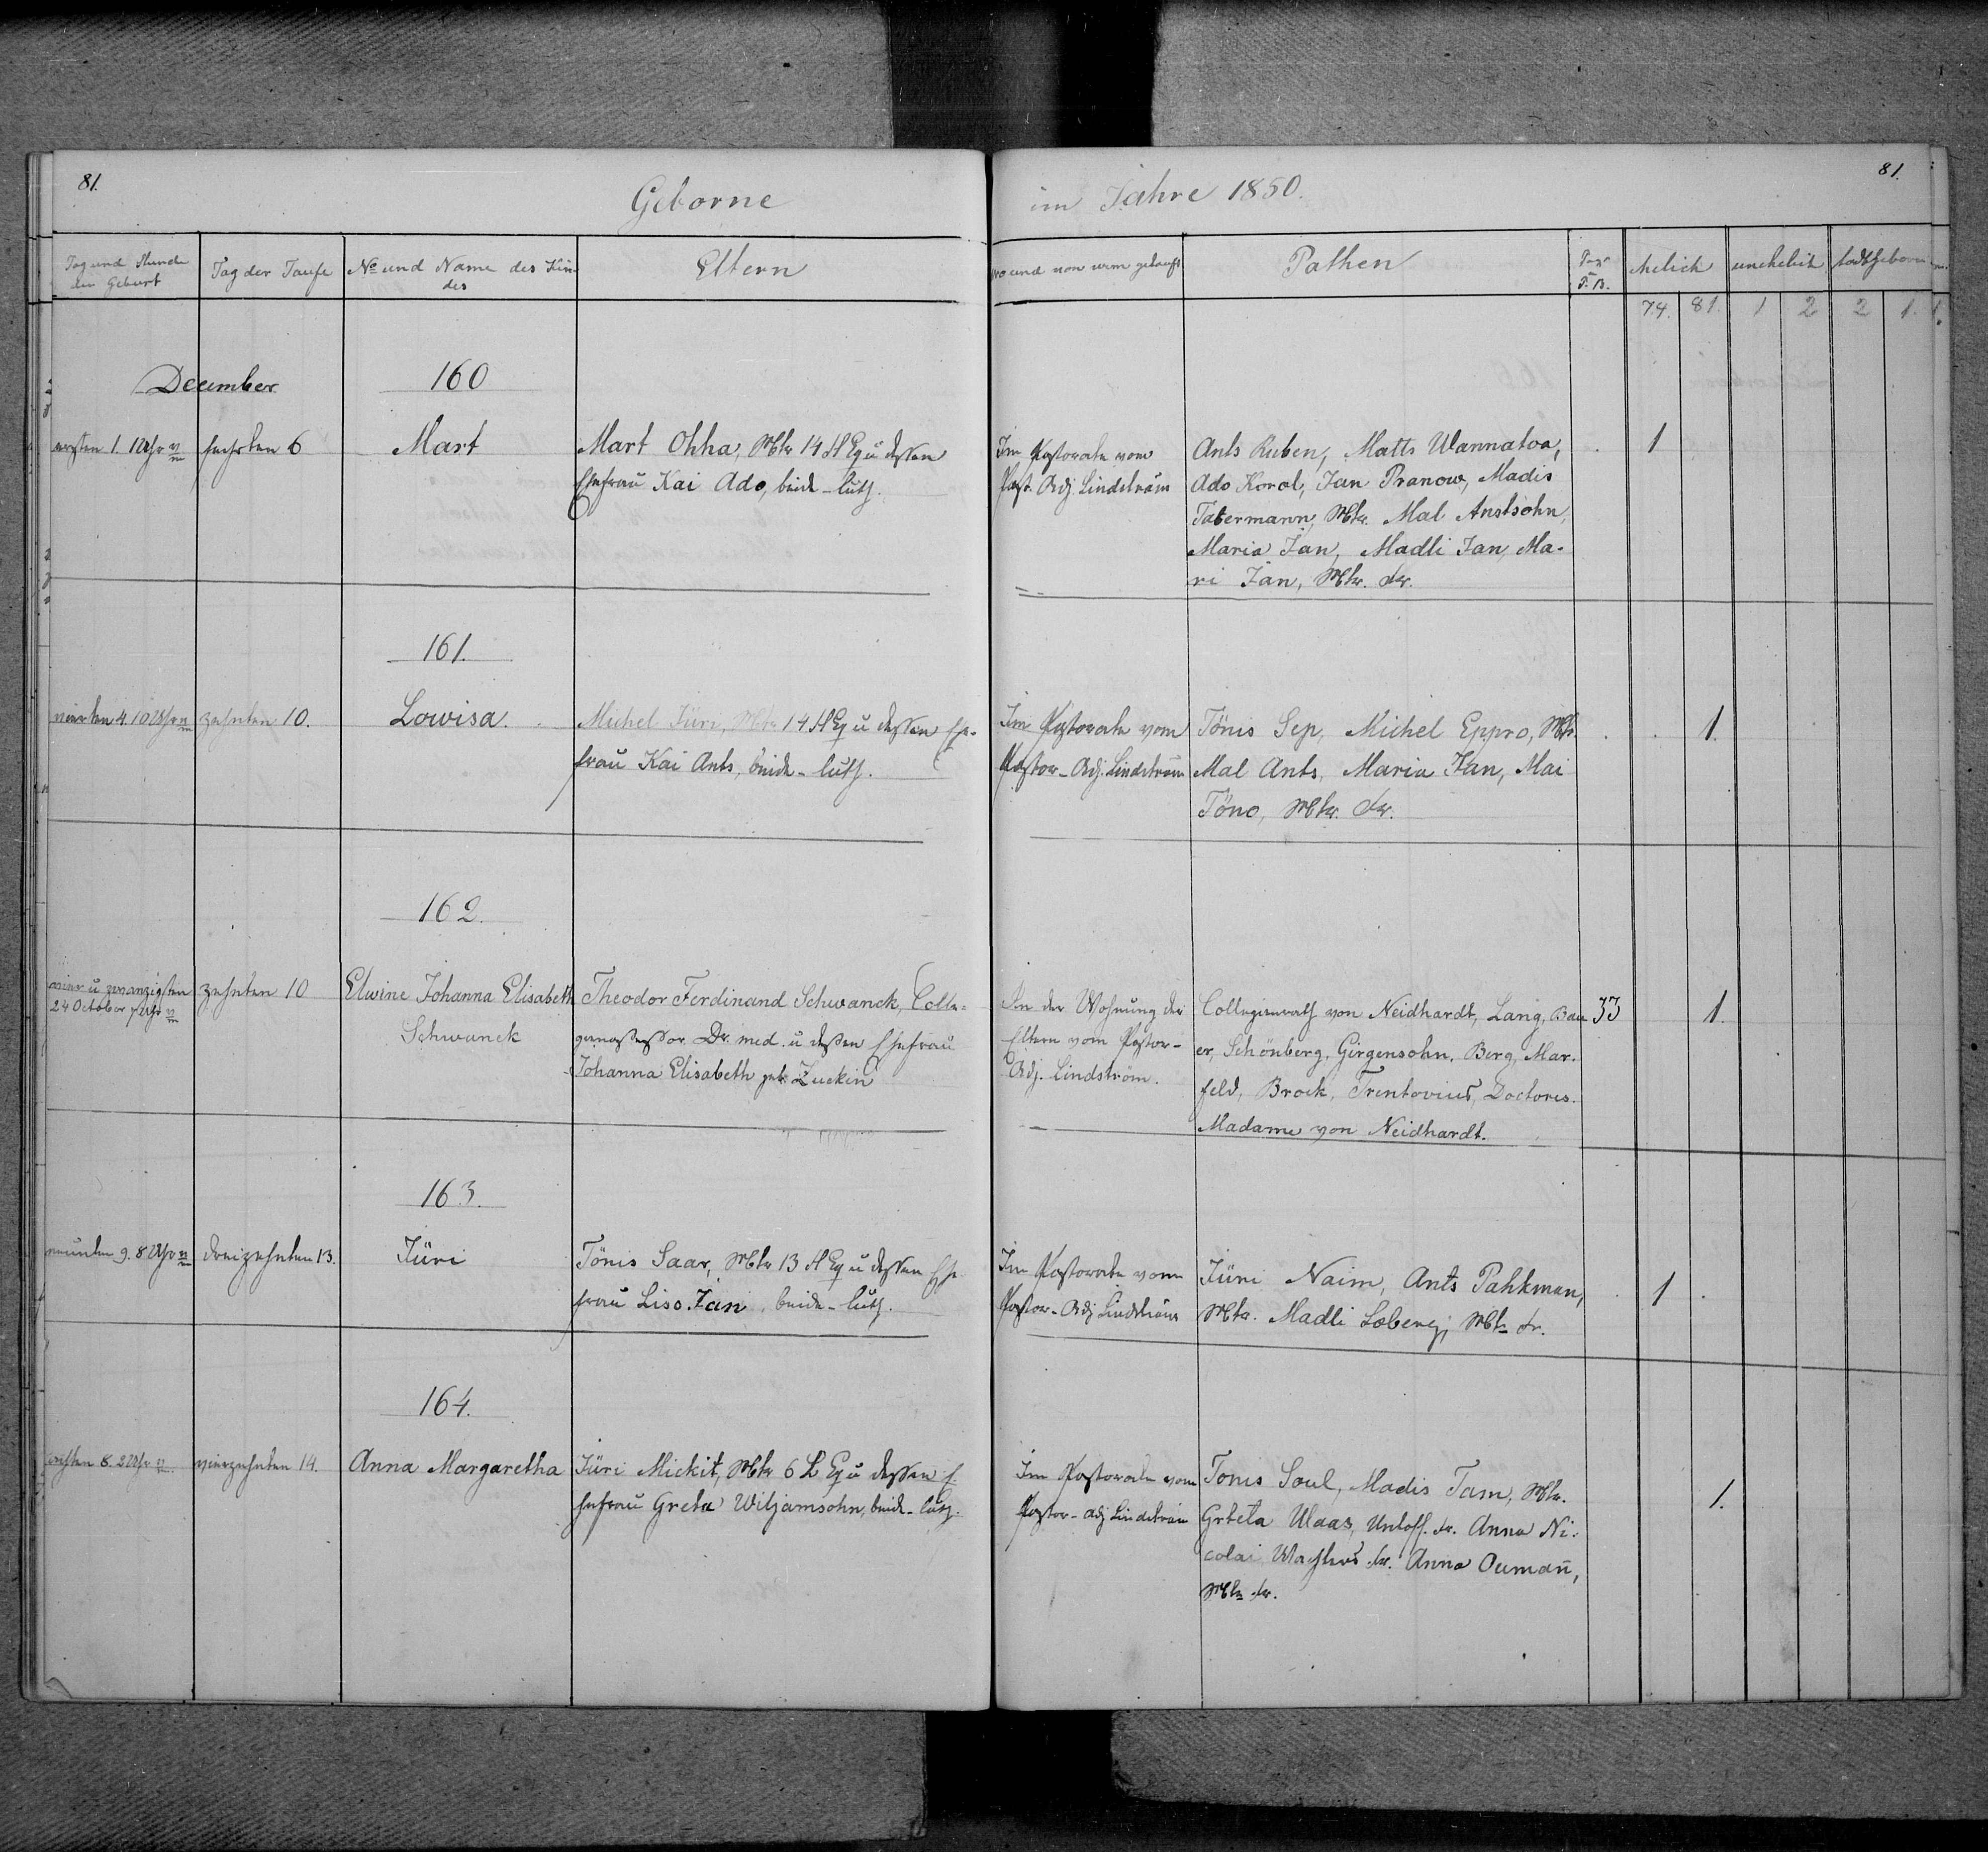 81.
Geborne
Tag und Stunde der Geburt
Tag der Taufe
No und Name des Kindes
Eltern
December
160
ersten 1. 12 Uhr
sechsten 6
Mart
Mart Ohha, Mtr 14 FlEq u dessen
Ehefrau Kai Ado, beide luth.
161.
vierten 4. 10 Uhr
zehnten 10.
Lowisa.
Michel Jüri, Mtr 14 FlEq u dessen Ehe-
frau Kai Ants, beide luth.
162.
vier u zwanzigsten
24 October
zehnten 10
Elwine Johanna Elisabeth
Schwanck
Theodor Ferdinand Schwanck, Colle-
genassessor Dr. med. u dessen Ehefrau
Johanna Elisabeth geb. Zuckin
163.
neunten 9. 8 Uhr
dreizehnten 13.
Jüri
Tönis Saar, Mtr 13 FlEq u dessen Ehe
frau Liso Jan, beide luth.
164.
achten 8. 2 Uhr
vierzehnten 14.
Anna Margaretha
Jüri Mickit, Mtr 6 L Eq u dessen E-
hefrau Greta Wiljamsohn, beide luth.
81.
im Jahre 1850.
wo und von wem getauft
Pathen
ehelich
unehelich
todtgeboren
74. 81. 1 2 2 1.
Im Pastorate vom
Past. Adj. Lindström
Ants Ruben, Matts Wannatoa,
Ado Korol, Jan Pranow, Madis
Tabermann, Mtr. Mal Anstsohn,
Maria Jan, Madli Jan, Ma-
ri Jan, Mtr. fr.
1
Im Pastorate vom
Pastor-Adj. Lindström
Tönis Sep, Michel Eppro, Mtr.
Mal Ants, Maria Jan, Mai
Töno, Mtr. fr.
1.
In der Wohnung der
Eltern vom Pastor-
Adj. Lindström.
Collegienrath von Neidhardt, Lang, Bau
er, Schönberg, Girgensohn, Berg, Mar-
feld, Brock, Trentovius, Doctores.
Madame von Neidhardt.
33
1.
Im Pastorate vom
Pastor-Adj Lindström
Jüri Naim, Ants Pahkman,
Mtr. Madli Loberg, Mtr fr.
1
Im Pastorate vom
Pastor-adj Lindström
Tonis Soul, Madis Tam, Mtr.
Greta Waas, Untoff. fr. Anna Ni-
colai, Wachters fr. Anna Oumañ,
Mtr fr.
1.